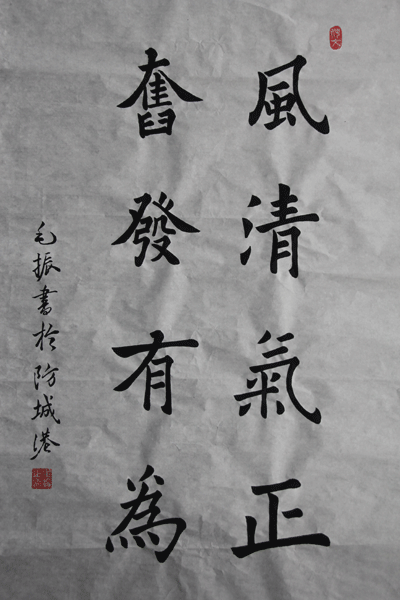 風清氣正
奮發有為
毛振書於防城港